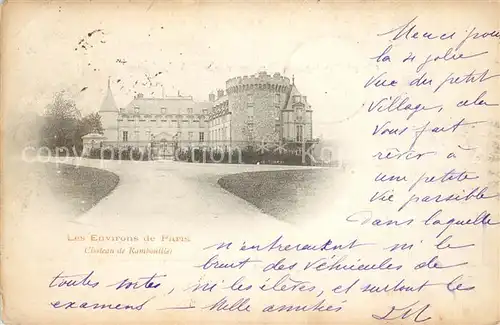 Merci pour
la si jolie
Vue du petit
Village, cela
Vous fait
rêver à
une petite
Vie paisible
Dans laquelle
n'entreraient ni le
bruit des véhicules de
toutes sortes, ni les élèves, et surtout les
examens — Mille amitiés
Les Environs de Paris
Château de Rambouillet
copyright